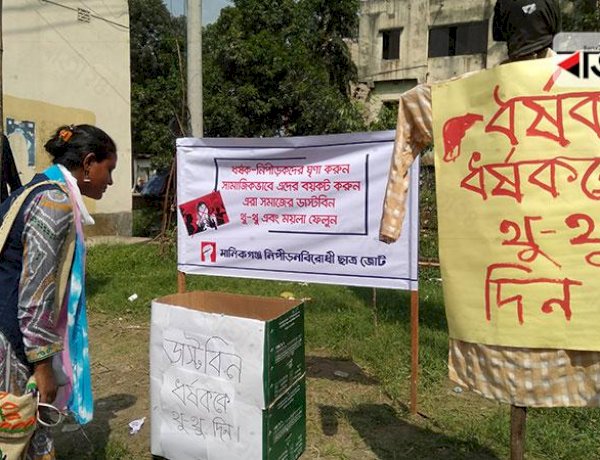 ধর্ষক-নিপীড়কদের ঘৃণা করুন
সামাজিকভাবে এদের বয়কট করুন
এরা সমাজের ডাস্টবিন
থু-থু এবং ময়লা ফেলুন
মানিকগঞ্জ নিপীড়নবিরোধী ছাত্র জোট
ডাস্টবিন
ধর্ষককে
থু থু দিন।
ধর্ষক
ধর্ষককে
থু-থু
দিন।